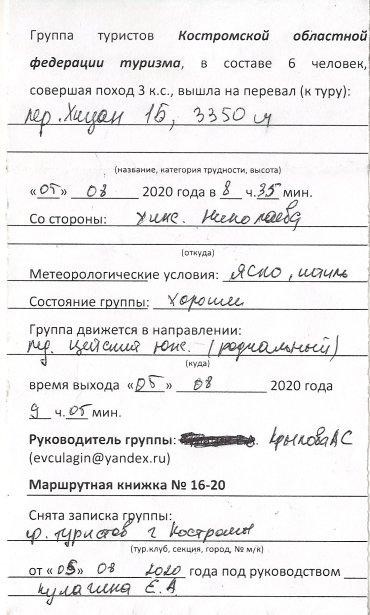 Группа туристов Костромской областной
федерации туризма, в составе 6 человек,
совершая поход 3 к.с., вышла на перевал (к туру):
пер. Хицан 1Б, 3350 м
(название, категория трудности, высота)
«05» 08 2020 года в 8 ч.35 мин.
Со стороны: хиж. Николаева
(откуда)
Метеорологические условия: ясно, штиль
Состояние группы: хорошее
Группа движется в направлении:
лед. Цейский юж. (радиальный)
(куда)
время выхода «05» 08 2020 года
9 ч. 05 мин.
Руководитель группы: Крылова АС
(evculagin@yandex.ru)
Маршрутная книжка № 16-20
Снята записка группы:
гр. туристов г Костромы
(тур.клуб, секция, город, № м/к)
от «05 08 2020 года под руководством
Кулагина Е.А